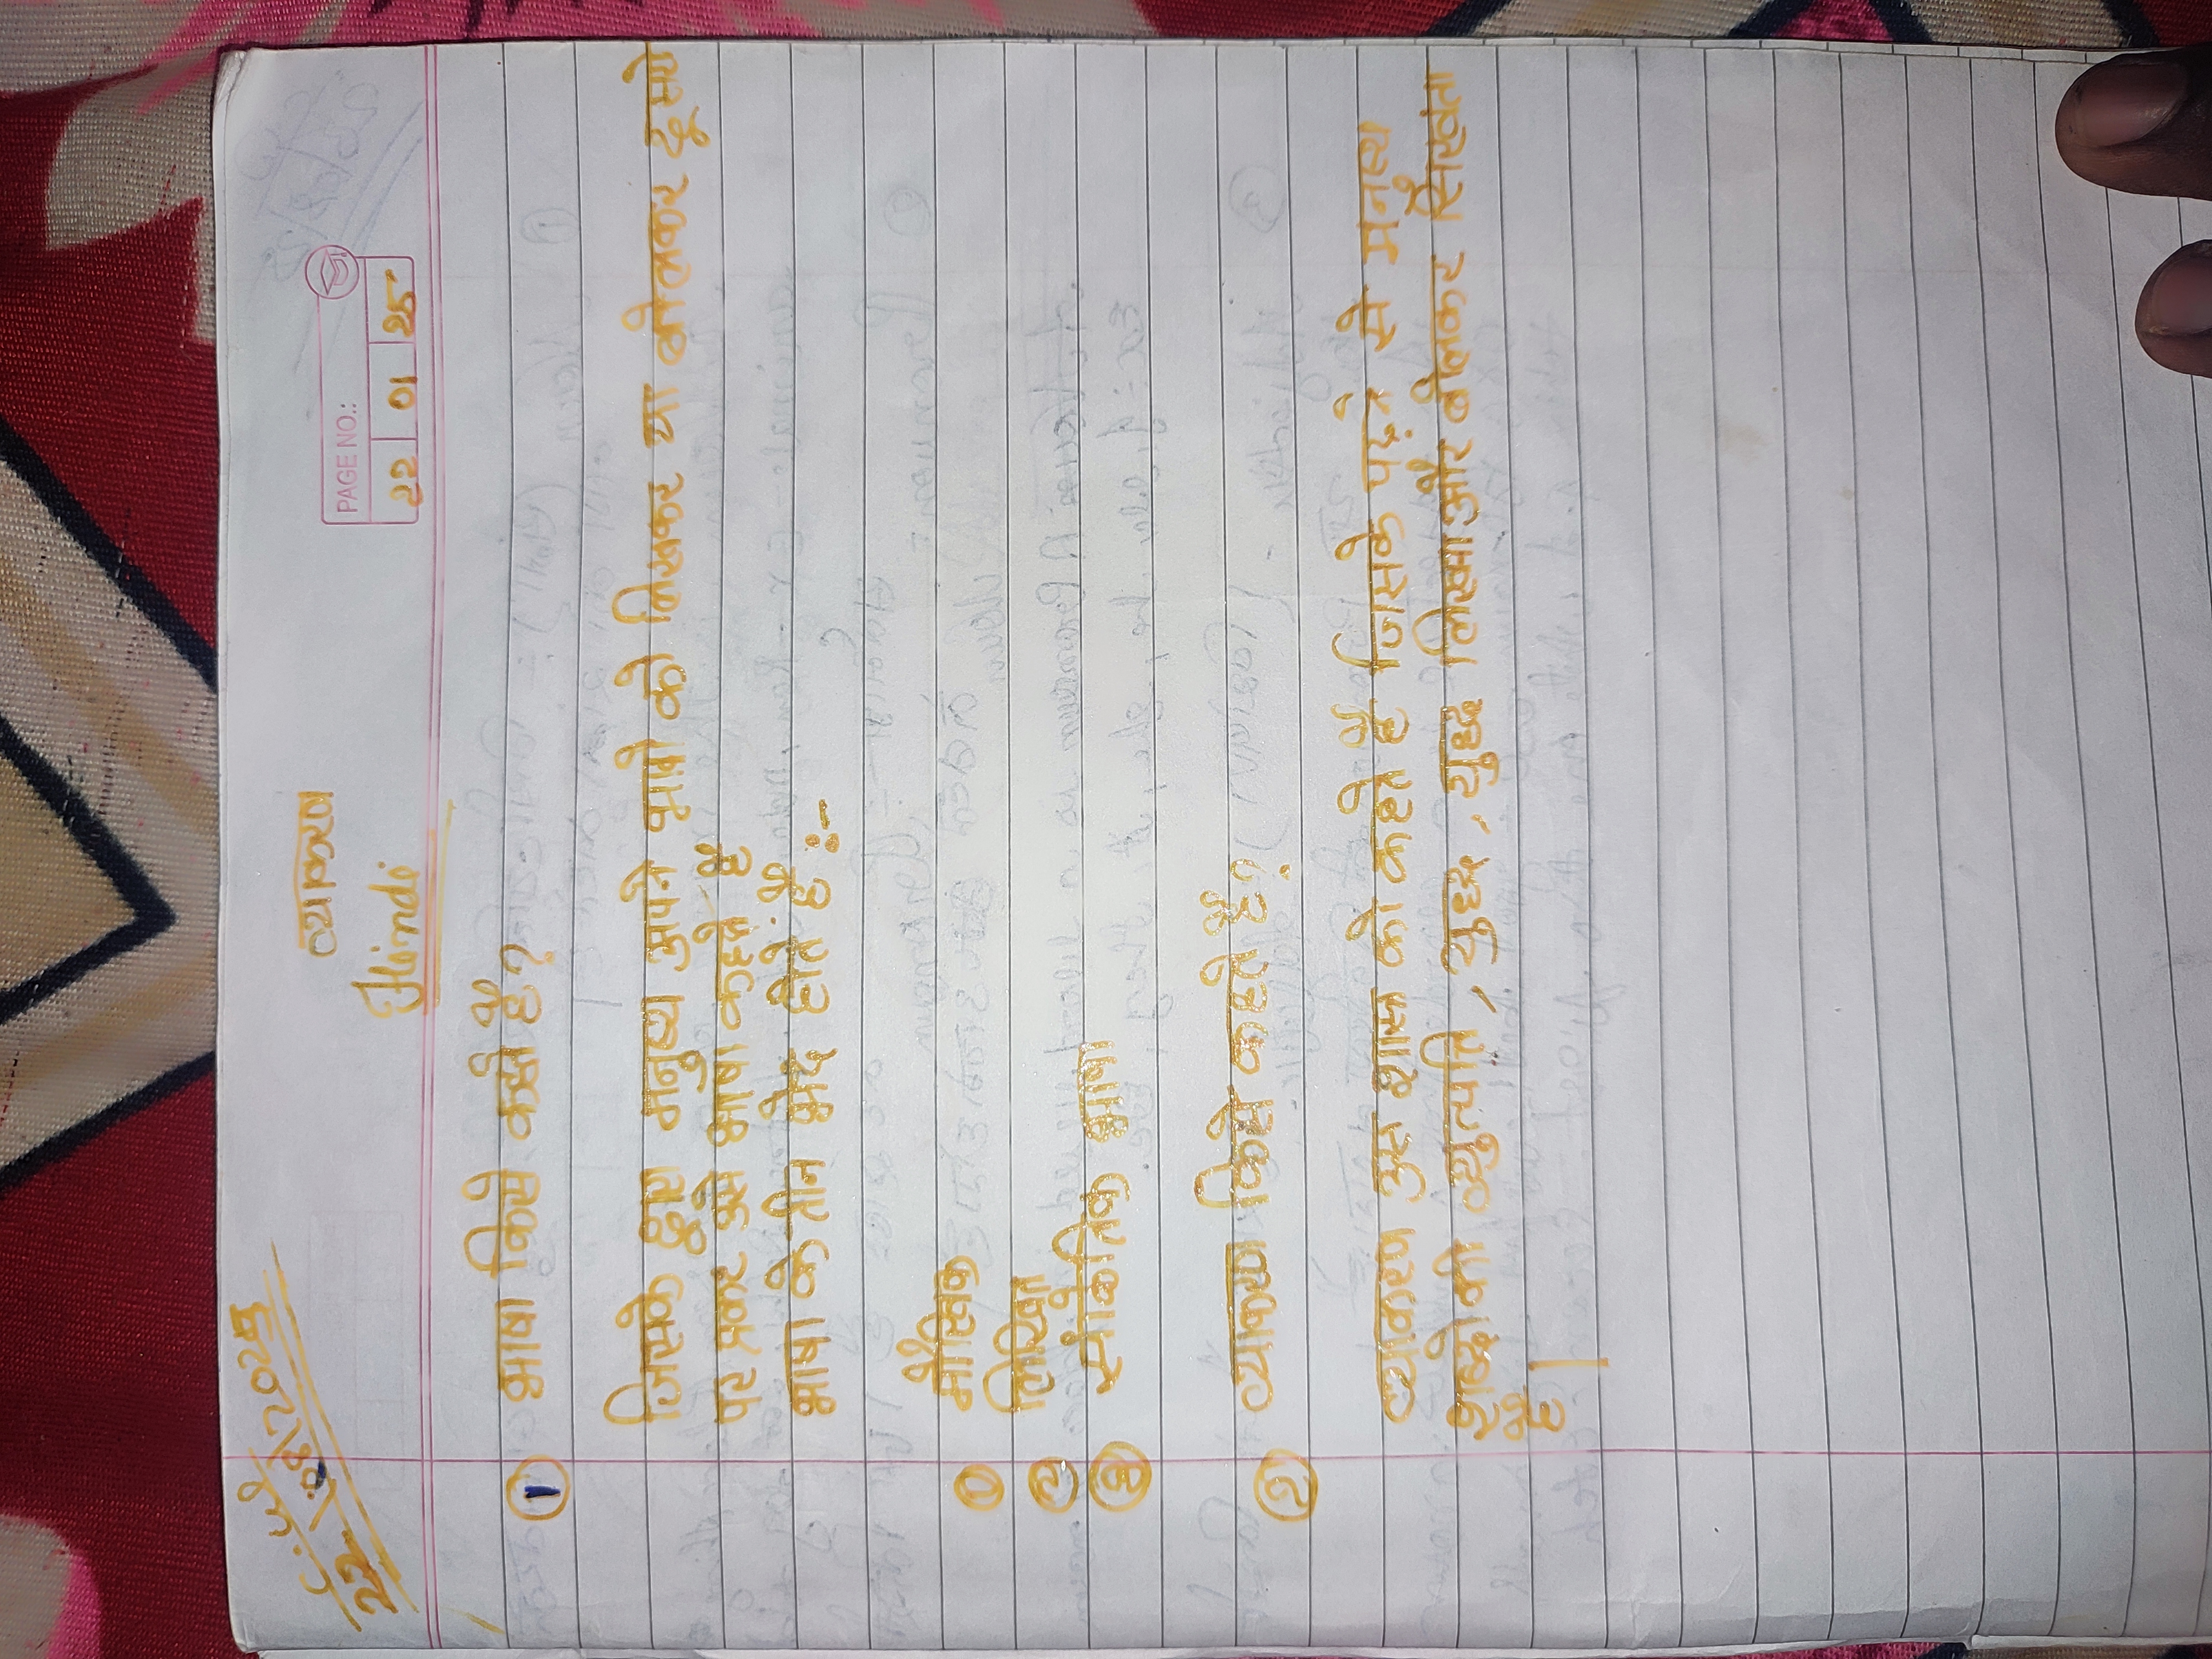 C.W
22\08\2025
PAGE NO.:
22 01 25
व्याकरण
Hindi
① भाषा किसे कहते हैं?
जिसके द्वारा मनुष्य अपने भावो को लिखकर या बोलकर दूसरो
पर प्रकट उसे भाषा कहते हैं
भाषा के तीन भेद होते हैं :-
① मौखिक
② लिखित
③ सांकेतिक भाषा
② व्याकरण किसे कहते हैं?
व्याकरण उस शास्त्र को कहते हैं जिसके पढ़ने से मनुष्य
शब्दो की व्युत्पत्ति, शुद्ध, शुद्ध लिखना और बोलकर सिखता
है।